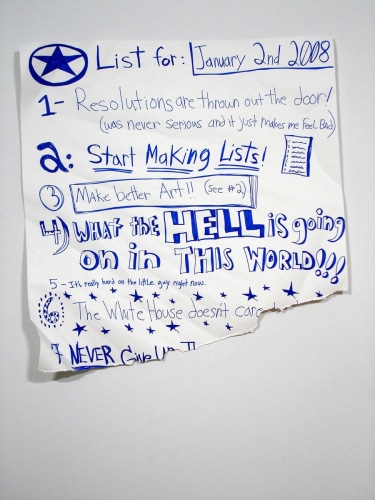 List for: January 2nd 2008
1- Resolutions are thrown out the door!
(was never serious and it just makes me feel Bad)
2: Start Making Lists!
3 Make better Art!! (See #2)
4) WHAT the HELL is going
on in THIS WORLD!!!
5 - It's really hard on the little guy right now.
The White House doesn't care
7 NEVER Give Up